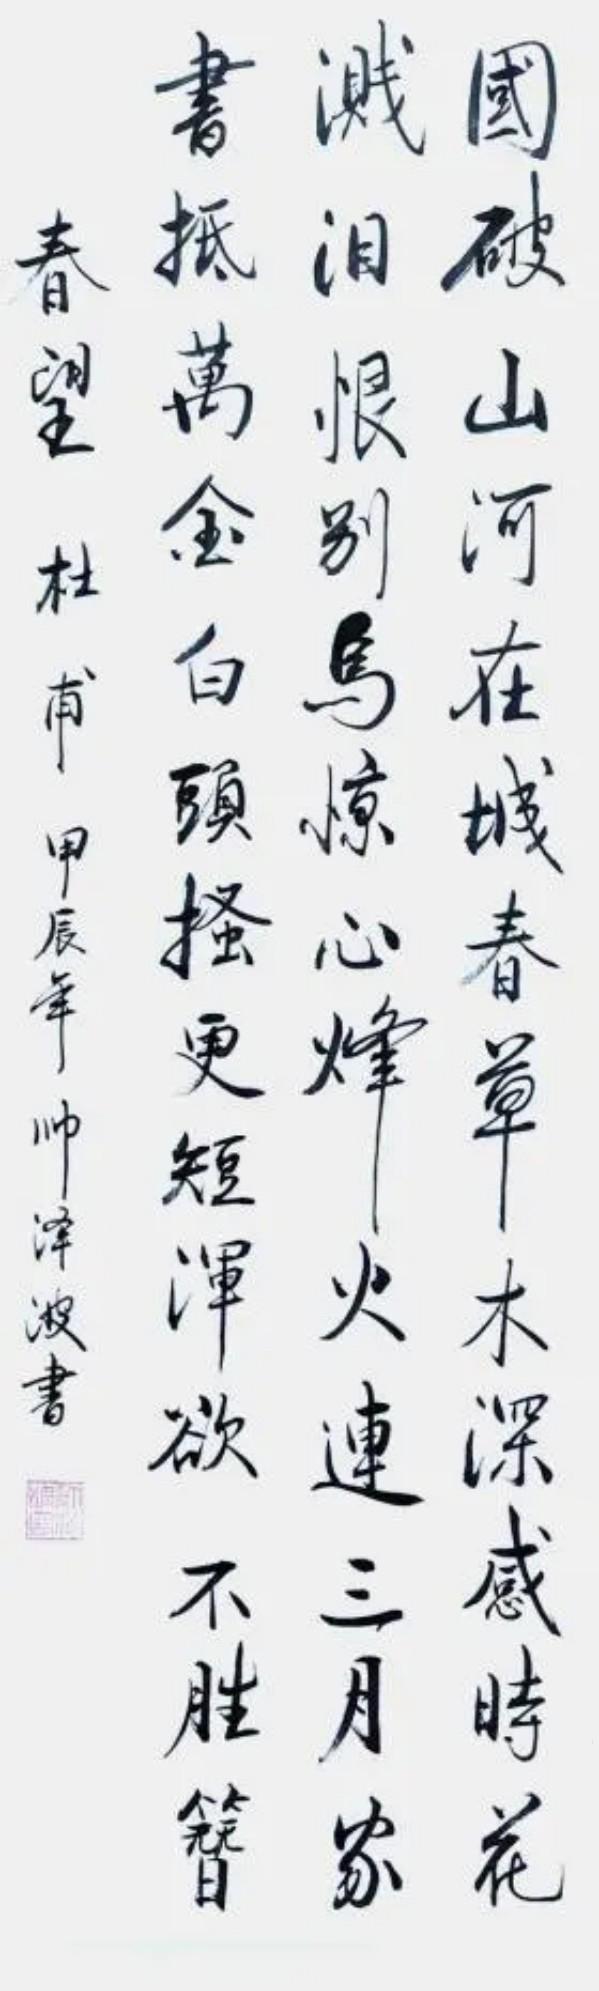 國破山河在城春草木深感時花
溅泪恨别鳥惊心烽火連三月家
書抵萬金白頭搔更短渾欲不胜簪
春望 杜甫 甲辰年 帅泽波書